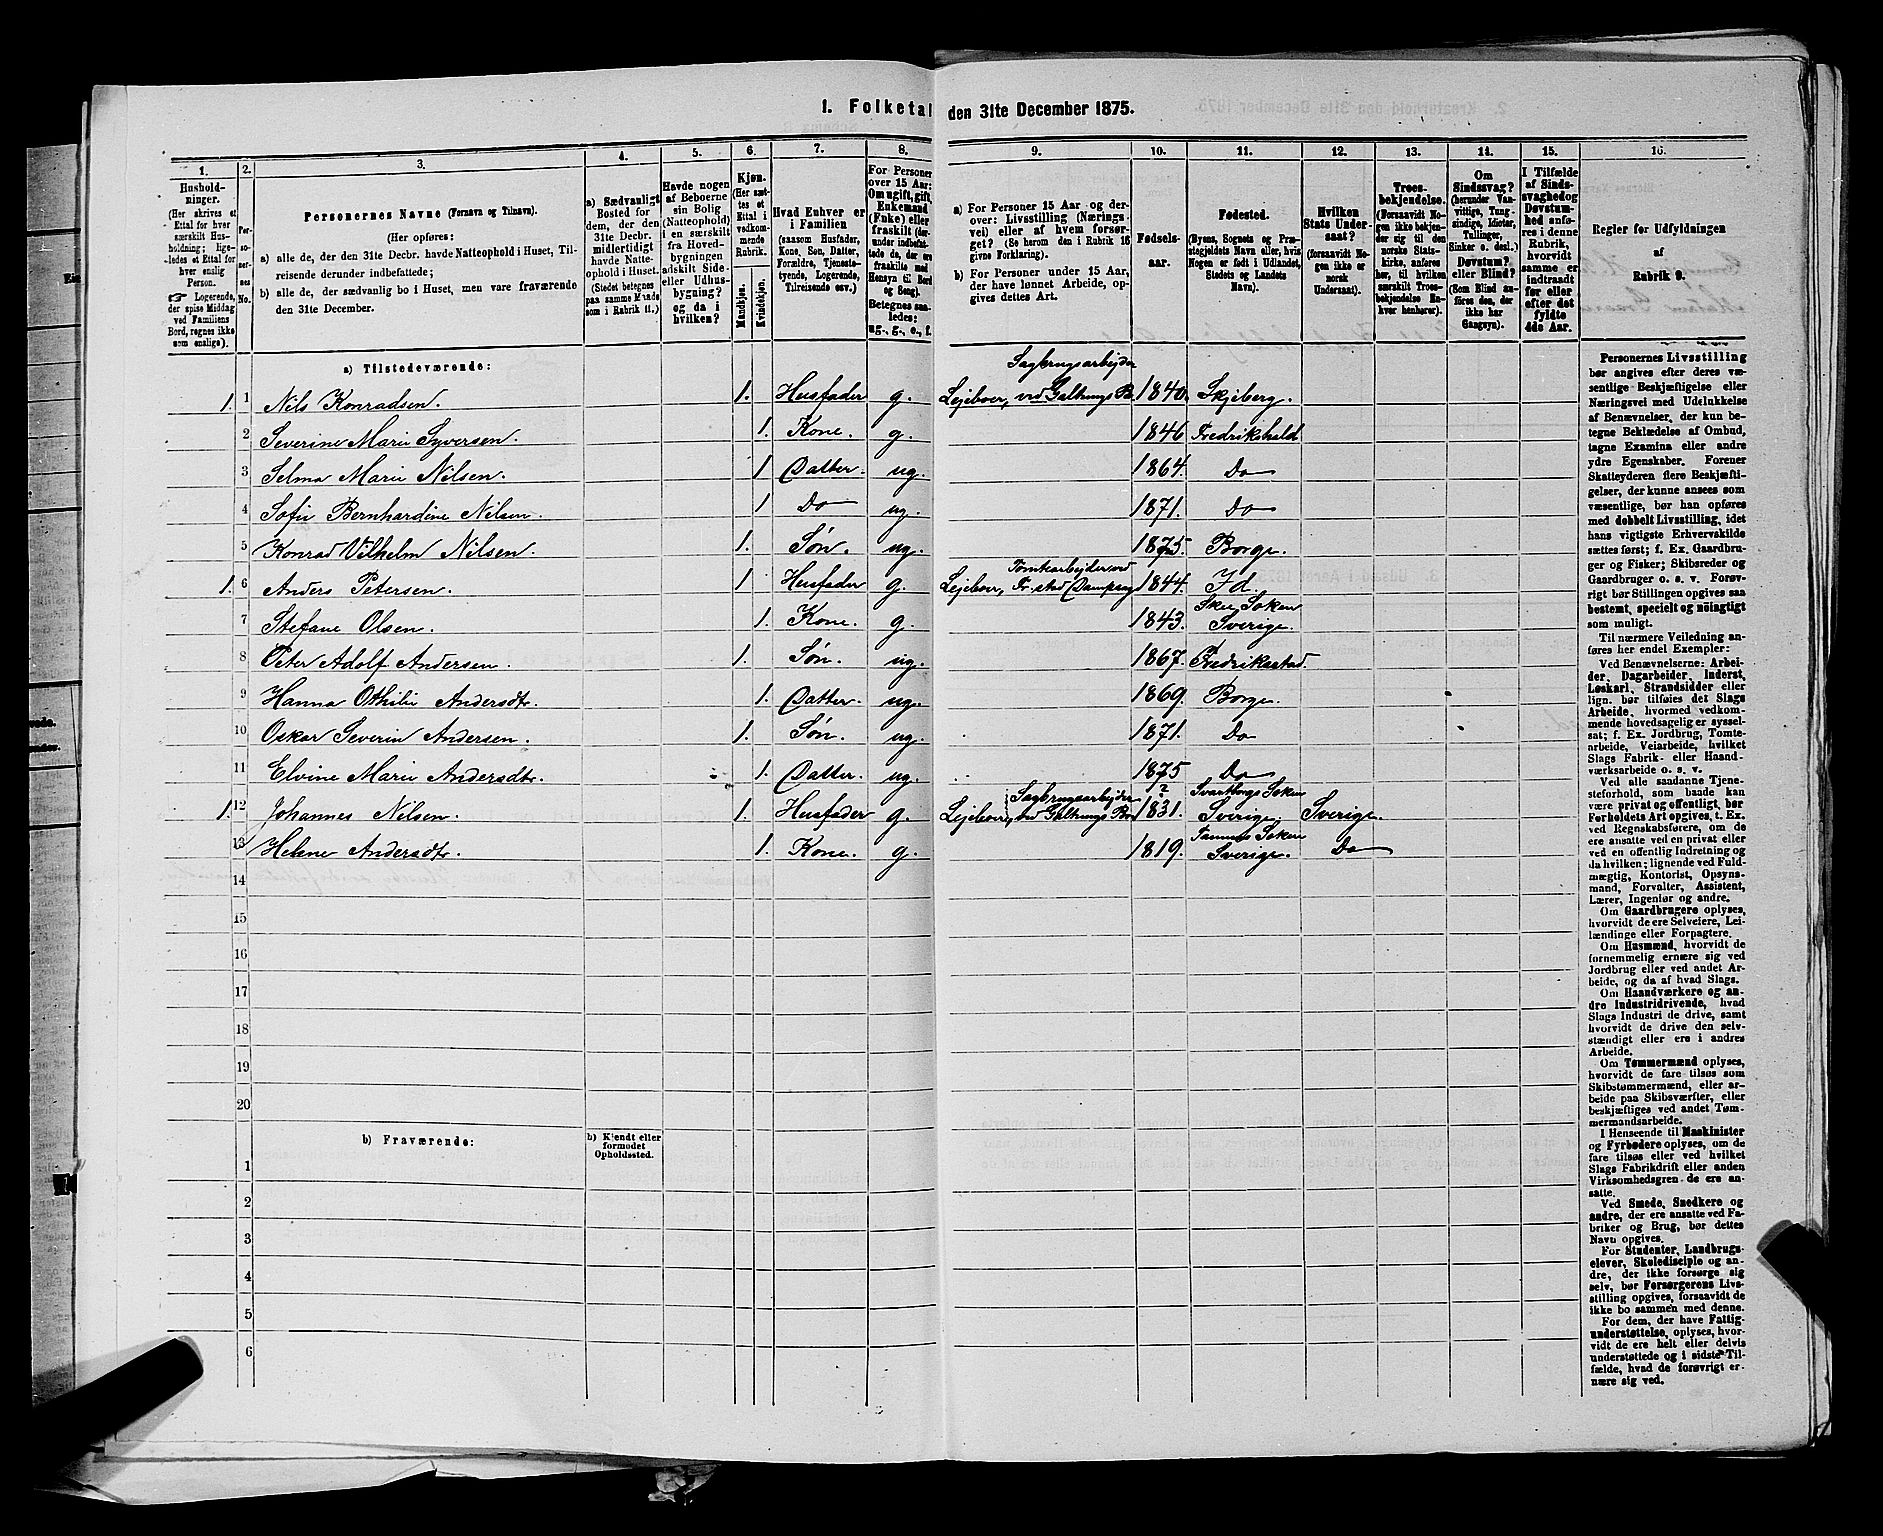 1. Folketal den 31te December 1875.
1. 2. 3. 4. 5. 6. 7. 8. 9. 10. 11. 12. 13. 14. 15. 16.
Hushold-
ninger.
(Her skrives et
Ettal for hver
særskilt Hus-
holdning; lige-
ledes et Ettal for
hver enslig
Person.
☞ Logerende,
der spise Middag
ved Familiens
Bord, regnes ikke
som enslige).
Per-
so-
ner-
nes
No.
Personernes Navne (Fornavn og Tilnavn).
(Her opføres:
a) alle de, der den 31te Decbr. havde Natteophold i Huset, Til-
reisende derunder indbefattede;
b) alle de, der sædvanlig bo i Huset, men vare fraværende
den 31te December.
a) Sædvanligt
Bosted for
dem, der den
31te Decbr.
midlertidigt
havde Natte-
ophold i Huset.
(Stedet betegnes
paa samme Maade
som i Rubrik 11.)
Havde nogen
af Beboerne
sin Bolig
(Natteophold)
i en særskilt
fra Hoved-
bygningen
adskilt Side-
eller Udhus-
bygning?
og da i
hvilken?
Kjøn.
(Her sæt-
tes et
Ettal i
vedkom-
mende
Rubrik.
Mandkjøn.
Kvindekjøn.
Hvad Enhver er
i Familien
(saasom Husfader,
Kone, Søn, Datter,
Forældre, Tjeneste-
tyende, Logerende,
Tilreisende osv.)
For Personer
over 15 Aar:
Om ugift, gift,
Enkemand
(Enke) eller
fraskilt (der-
under indbefat-
tede de, der ere
fraskilte med
Hensyn til Bord
og Seng).
Betegnes saa-
ledes:
ug., g., e., f.
a) For Personer 15 Aar og der-
over: Livsstilling (Nærings-
vei) eller af hvem forsør-
get? (Se herom den i Rubrik 16
givne Forklaring).
b) For Personer under 15 Aar,
der have lønnet Arbeide, op-
gives dettes Art.
Fødsels-
aar.
Fødested.
(Byens, Sognets og Præ-
stegjeldets Navn eller, hvis
Nogen er født i Udlandet,
Stedets og Landets
Navn).
Hvilken
Stats Under-
saat?
(forsaavidt No-
gen ikke er
norsk
Undersaat).
Troes-
bekjendelse.
(Forsaavidt No-
gen ikke bekjen-
der sig til den
norske Stats-
kirke, anføres
her, til hvilken
særskilt Troes-
bekjendelse En-
hver henhører).
Om
Sindssvag?
(herunder Van-
vittige, Tung-
sindige, Idioter,
Tullinger,
Sinker o. desl.).
Døvstum?
eller Blind?
(Som Blind an-
føres den, der
ikke har
Gangsyn).
I Tilfælde
af Sinds-
svaghed og
Døvstum-
hed anfø-
res i denne
Rubrik,
hvorvidt
samme er
indtraadt
før eller
efter det
fyldte
4de Aar.
Regler for Udfyldningen
af
Rubrik 9.
a) Tilstedeværende:
Sagbrugsarbejder
1. 1 Nils Konradsen. 1. Husfader g. Lejeboer, ved Galtungs B. 1840. Skjeberg.
2 Severine Marie Syversen. 1. Kone. g. 1846 Fredrikshald
3 Selma Marie Nilsen. 1 Datter. ug. 1864. Do
4 Sofie Bernhardine Nilsen. 1 Do ug. 1871. Do
5 Konrad Vilhelm Nilsen. 1. Søn. ug. 1875. Borge.
Tomtearbejder ved
1. 6 Anders Petersen. 1 Husfader g. Lejeboer, Fr.stad Dampsag 1844. Id.
7 Stefane Olsen. 1. Kone. g. 1843. Skee Soken Sverige.
8 Peter Adolf Andersen. 1. Søn. ug. 1867. Fredrikstad.
9 Hanna Othilie Andersdtr. 1. Datter. ug. 1869. Borge.
10 Oskar Severin Andersen. 1. Søn. ug. 1871. Do
11 Elvine Marie Andersdtr. 1. Datter. ug. 1875 Do
Sagbrugsarbejder ? Svartborgs Soken
1. 12 Johannes Nilsen. 1. Husfader g. Lejeboer, ved Galtungs Br. 1831. Sverige. Sverige.
13 Helene Andersdtr. 1. Kone. g. 1819. Tanums Soken Sverige. Do
14
15
16
17
18
19
20
b) Fraværende:
b) Kjendt eller
formodet
Opholdssted.
1
2
3
4
5
6
Personernes Livsstilling
bør angives efter deres væ-
sentlige Beskjæftigelse eller
Næringsvei med Udelukkelse
af Benævnelser, der kun be-
tegne Beklædelse af Ombud,
tagne Examina eller andre
ydre Egenskaber. Forener
Skatteyderen flere Beskjæfti-
gelser, der kunne ansees som
væsentlige, bør han opføres
med dobbelt Livsstilling, idet
hans vigtigste Erhvervskilde
sættes først; f. Ex. Gaardbru-
ger og Fisker; Skibsreder og
Gaardbruger o. s. v. Forøv-
rigt bør Stillingen opgives saa
bestemt, specielt og nøiagtigt
som muligt.
Til nærmere Veiledning an-
føres her endel Exempler:
Ved Benævnelserne: Arbei-
der, Dagarbeider, Inderst,
Løskarl, Strandsidder eller
lign. bør tilføies det Slags
Arbeide, hvormed vedkom-
mende hovedsagelig er syssel-
sat; f. Ex. Jordbrug, Tomte-
arbeide, Veiarbeide, hvilket
Slags Fabrik- eller Haand-
værksarbeide o. s. v.
Ved alle saadanne Tjene-
steforhold, som baade kan
være privat og offentligt, bør
Forholdets Art opgives, t. Ex.
ved Regnskabsførere, om de
ere ansatte ved en privat eller
ved en offentlig Indretning og
da hvilken; lignende ved Fuld-
mægtig, Kontorist, Opsyns-
mand, Forvalter, Assistent,
Lærer, Ingeniør og andre.
Om Gaardbrugere oplyses,
hvorvidt de ere Selveiere, Lei-
lændinge eller Forpagtere.
Om Husmænd, hvorvidt de
fornemmelig ernære sig ved
Jordbrug eller ved andet Ar-
beide, og da af hvad Slags.
Om Haandværkere og an-
dre Industridrivende, hvad
Slags Industri de drive, samt
hvorvidt de drive den selv-
stændigt eller ere i andres
Arbeide.
Om Tømmermænd oplyses,
hvorvidt de fare tilsøs som
Skibstømmermænd, eller ar-
beide paa Skibsværfter, eller
beskjæftiges ved andet Tøm-
mermandsarbeide.
I Henseende til Maskinister
og Fyrbødere oplyses, om de
fare tilsøs eller ved hvilket
Slags Fabrikdrift eller anden
Virksomhedsgren de ere an-
satte.
Ved Smede, Snedkere og
andre, der ere ansatte ved Fa-
briker og Brug, bør dettes
Navn opgives.
For Studenter, Landbrugs-
elever, Skoledisciple og an-
dre, der ikke forsørge sig
selv, bør Forsørgerens Livs-
stilling opgives, forsaavidt de
ikke bo sammen med denne.
For dem, der have Fattig-
understøttelse, oplyses, hvor-
vidt de ere helt eller delvis
understøttede og i sidste Til-
fælde, hvad de forøvrigt er-
nære sig ved.